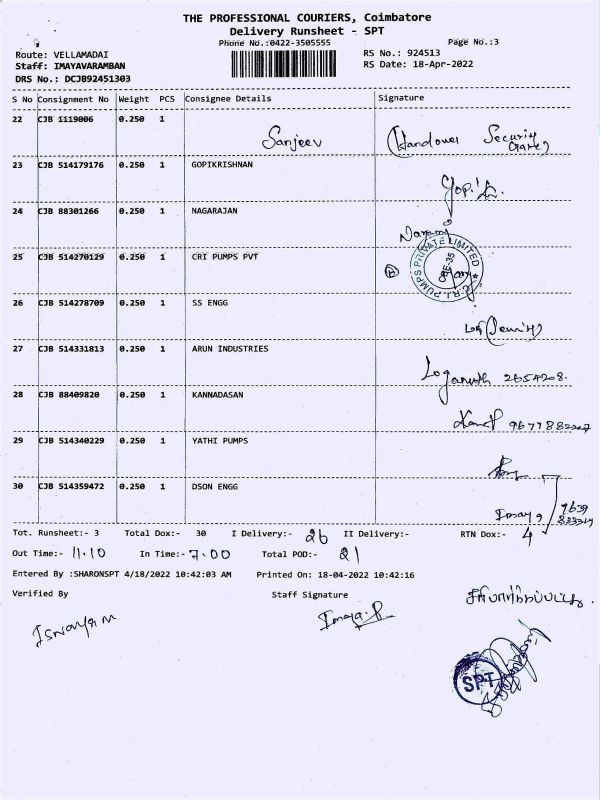 THE PROFESSIONAL COURIERS, Coimbatore
Delivery Runsheet - SPT
Phone No.:0422-3505555
Page No.:3
Route: VELLAMADAI
RS No.: 924513
Staff: IMAYAVARAMBAN
RS Date: 18-Apr-2022
DRS No.: DCJB92451303
S No Consignment No Weight PCS Consignee Details Signature
22 CJB 1119006 0.250 1 Sanjeev Handover Security
23 CJB 514179176 0.250 1 GOPIKRISHNAN
24 CJB 88301266 0.250 1 NAGARAJAN
25 CJB 514270129 0.250 1 CRI PUMPS PVT C.R.I. PUMPS PRIVATE LIMITED CBE-35
26 CJB 514278709 0.250 1 SS ENGG
27 CJB 514331813 0.250 1 ARUN INDUSTRIES
28 CJB 88409820 0.250 1 KANNADASAN
29 CJB 514340229 0.250 1 YATHI PUMPS
30 CJB 514359472 0.250 1 DSON ENGG
Tot. Runsheet:- 3 Total Dox:- 30 I Delivery:- 26 II Delivery:- RTN Dox:- 4
Out Time:- 11.10 In Time:- 7.00 Total POD:- 21
Entered By :SHARONSPT 4/18/2022 10:42:03 AM Printed On: 18-04-2022 10:42:16
Verified By Staff Signature
சரிபார்க்கப்பட்டது.
SPT